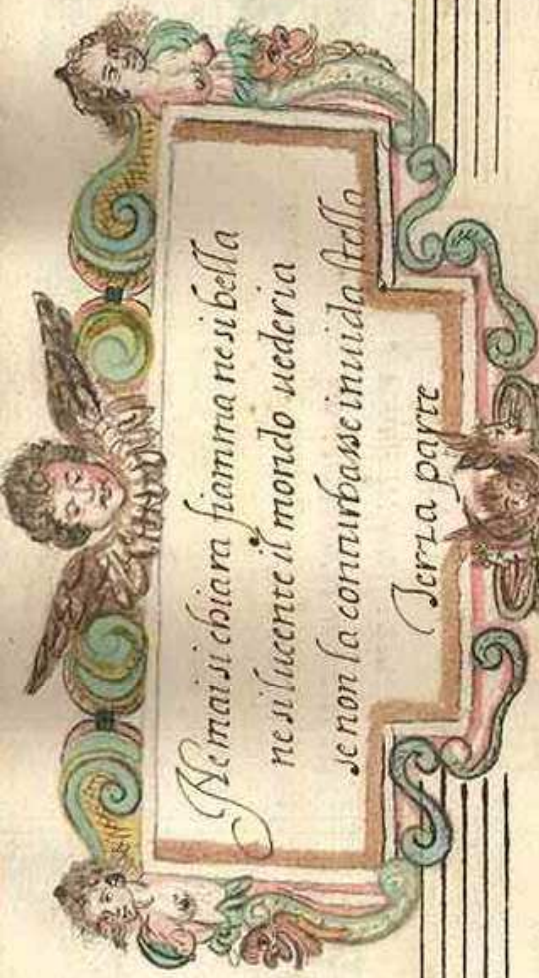 Ne mai si chiara fiamma ne si bella
ne si lucente il mondo uederia
se non la conturbasse inuida stella
Terza parte